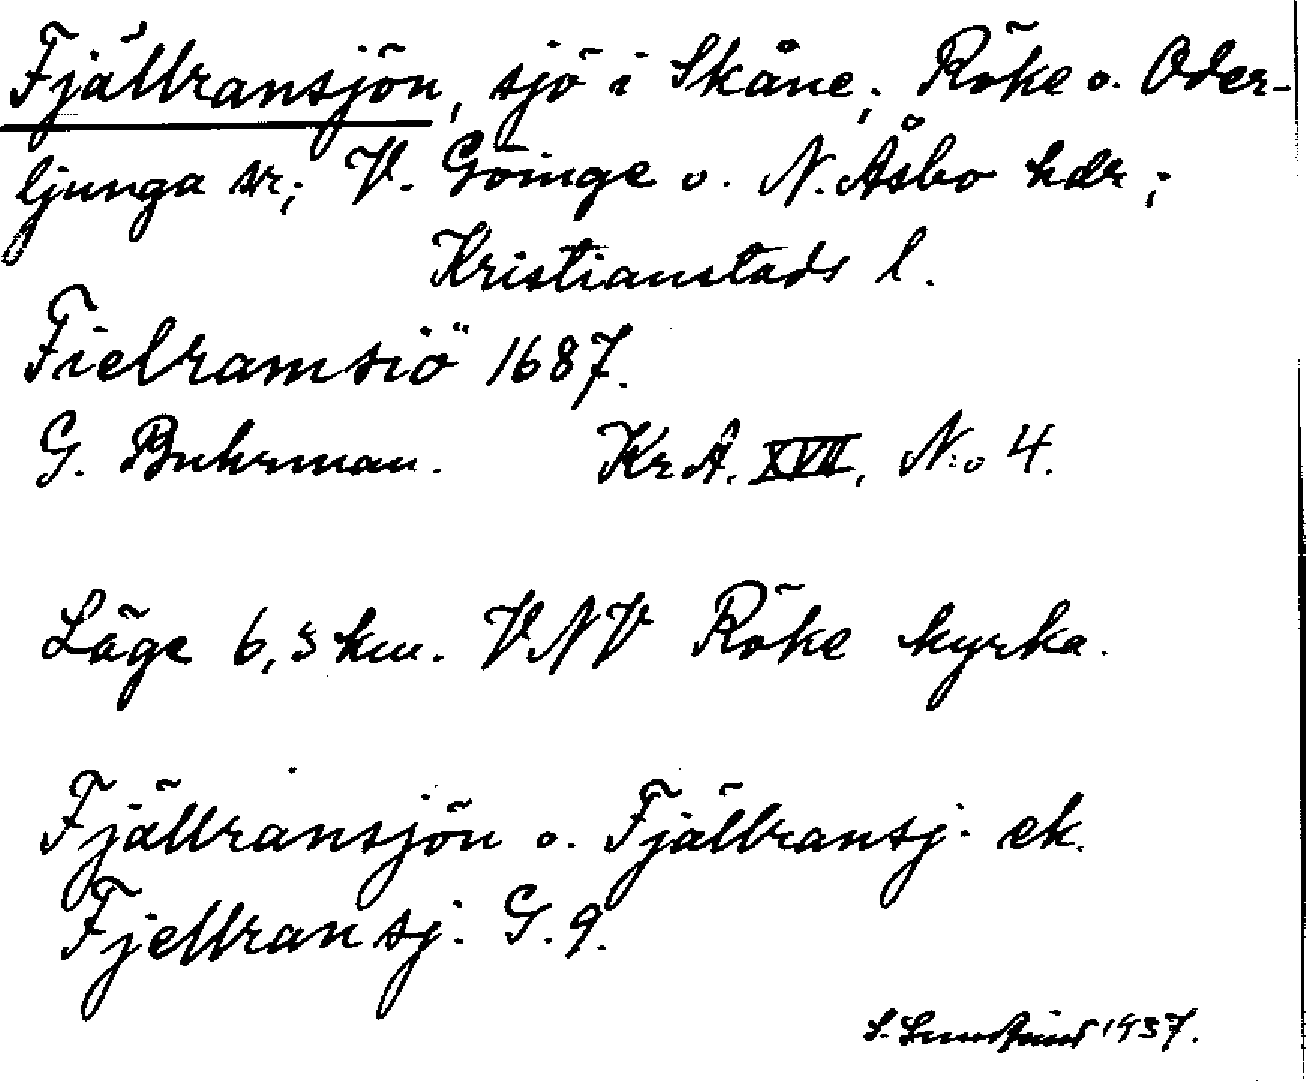 Fjällransjön, sjö i Skåne; Röke o. Oder-
ljunga sr; V. Göinge o. N. Åsbo hdr;
Kristianstads l.
Fielramsiö 1687.
G. Buhrman. Kr A. XVII, N:o 4.
Läge 6,5 km. VNV Röke kyrka.
Fjällransjön o. Fjällransj. ek.
Fjellransj. G. 9.
1937.